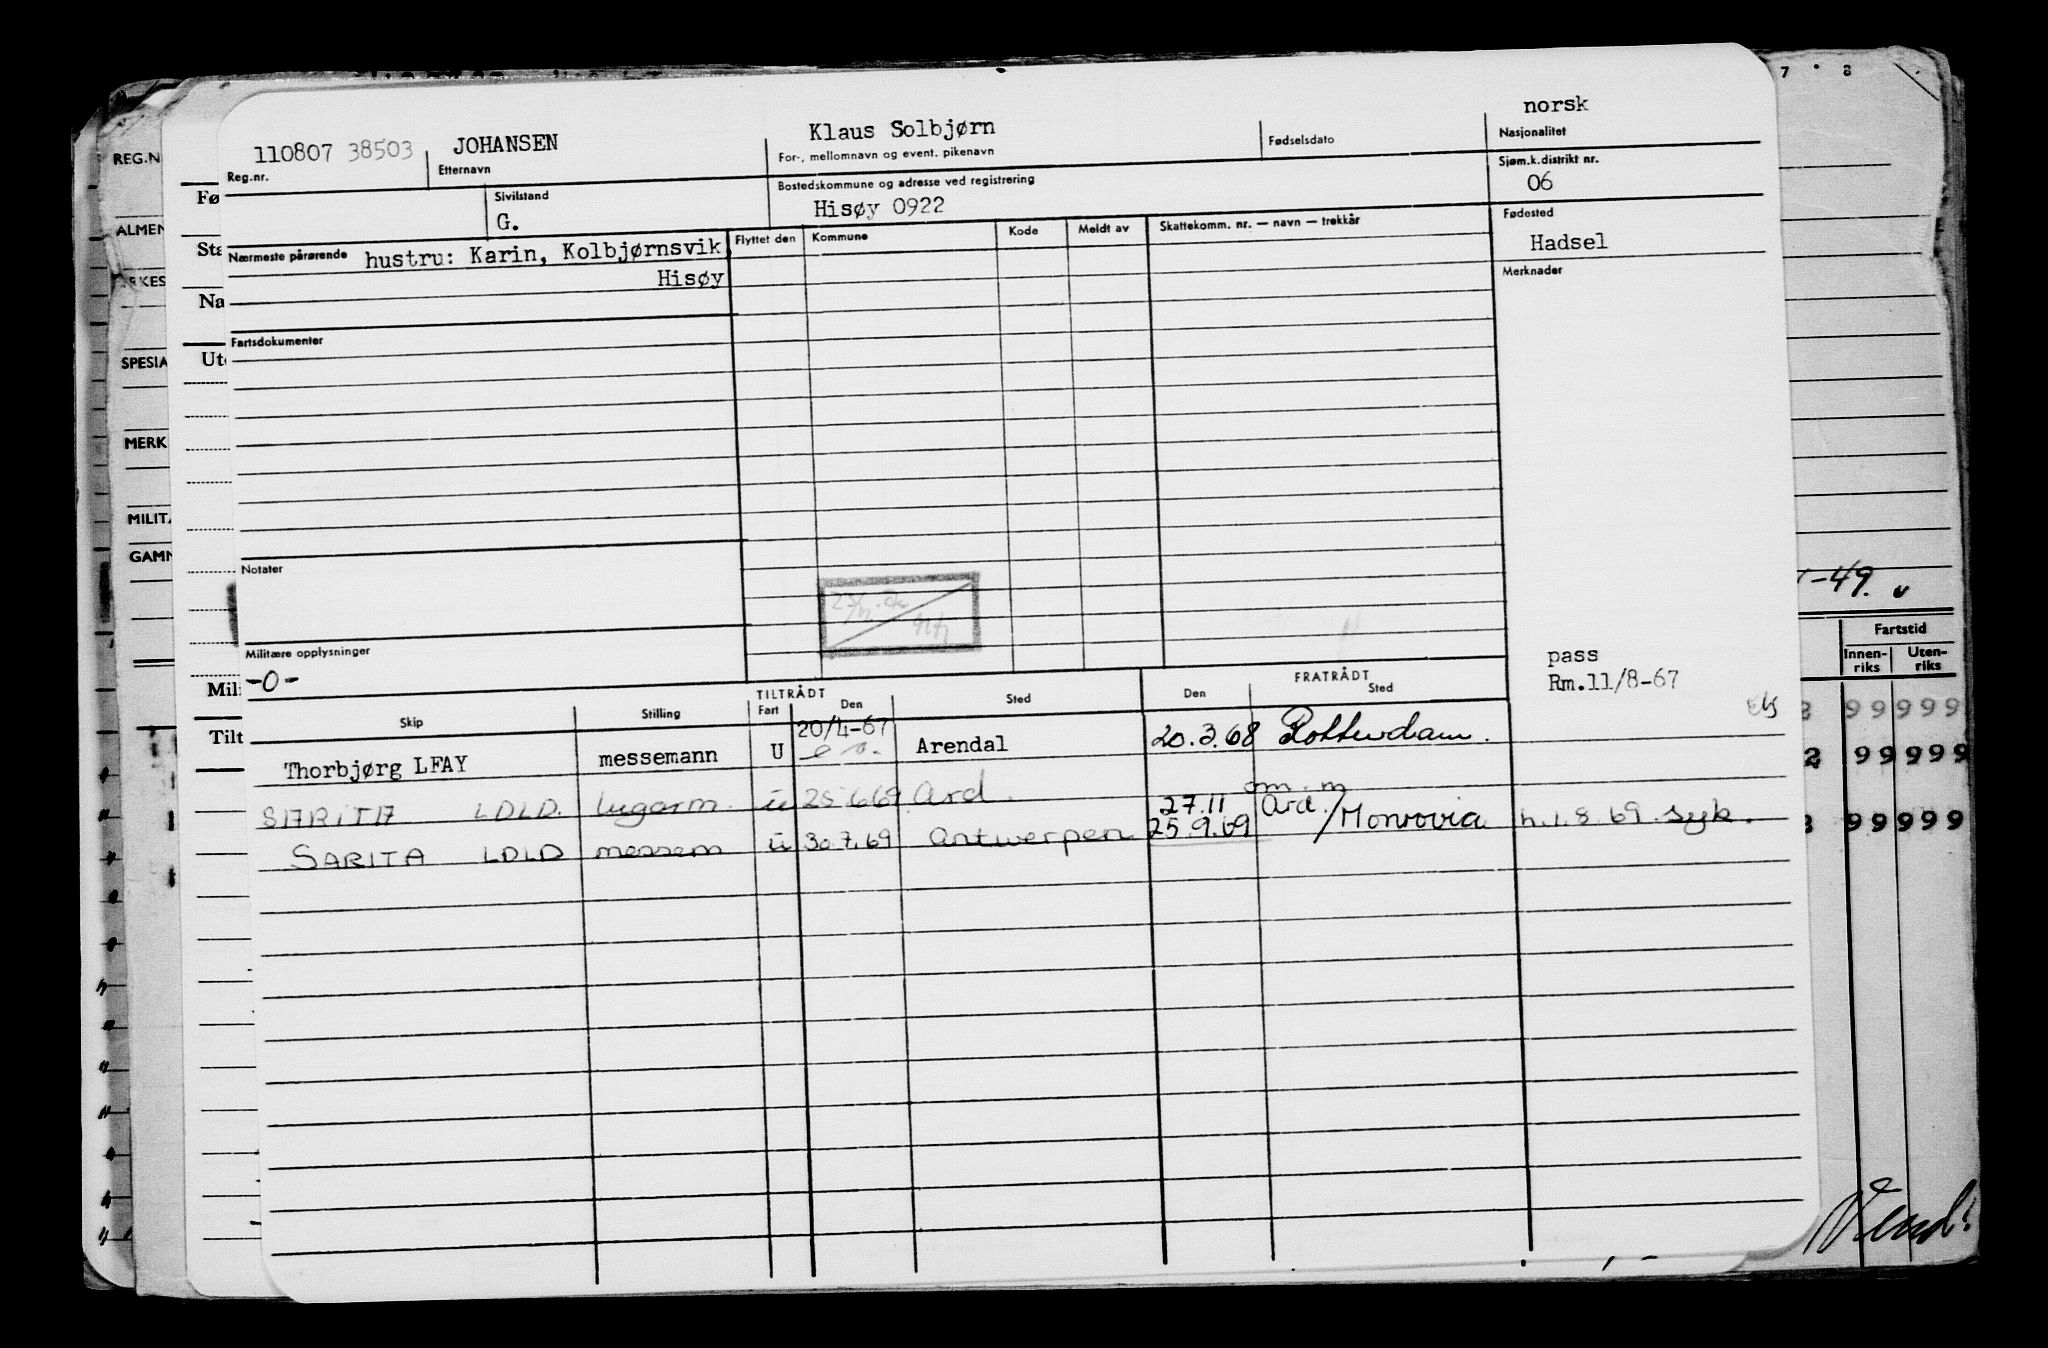 110807 38503
Reg.nr.
JOHANSEN
Etternavn
Klaus Solbjørn
For-, mellomnavn og event. pikenavn
Fødselsdato
norsk
Nasjonalitet
Sivilstand
G.
Bostedskommune og adresse ved registrering
Hisøy 0922
Sjøm.k.distrikt nr.
06
Nærmeste pårørende hustru: Karin, Kolbjørnsvik
Hisøy
Flyttet den Kommune Kode Meldt av Skattekomm. nr. — navn — trekkår
Fødested
Hadsel
Merknader
Fartsdokumenter
Notater
Militære opplysninger
-0-
pass
Rm.11/8-67
TILTRÅDT FRATRÅDT
Skip Stilling Fart Den Sted Den Sted
20/4-67
Thorbjørg LFAY messemann U Arendal 20.3.68 Rotterdam.
om. m
SARITA LDLD. lugarm. u 25.6.69 Ard. 27.11 Ard.
SARITA LDLD messem u 30.7.69 Antwerpen 25.9.69 /Monrovia h.1.8.69 syk.
REG.N
ALMEN
RKES
SPESIA
MERK
MILITÆ
GAMM
Fø
Sta
Na
Ut
Mili
Tilt
7 8
-49.
Fartstid
Innen-riks Uten-riks
99 999
2 99 999
99 999
Vend!